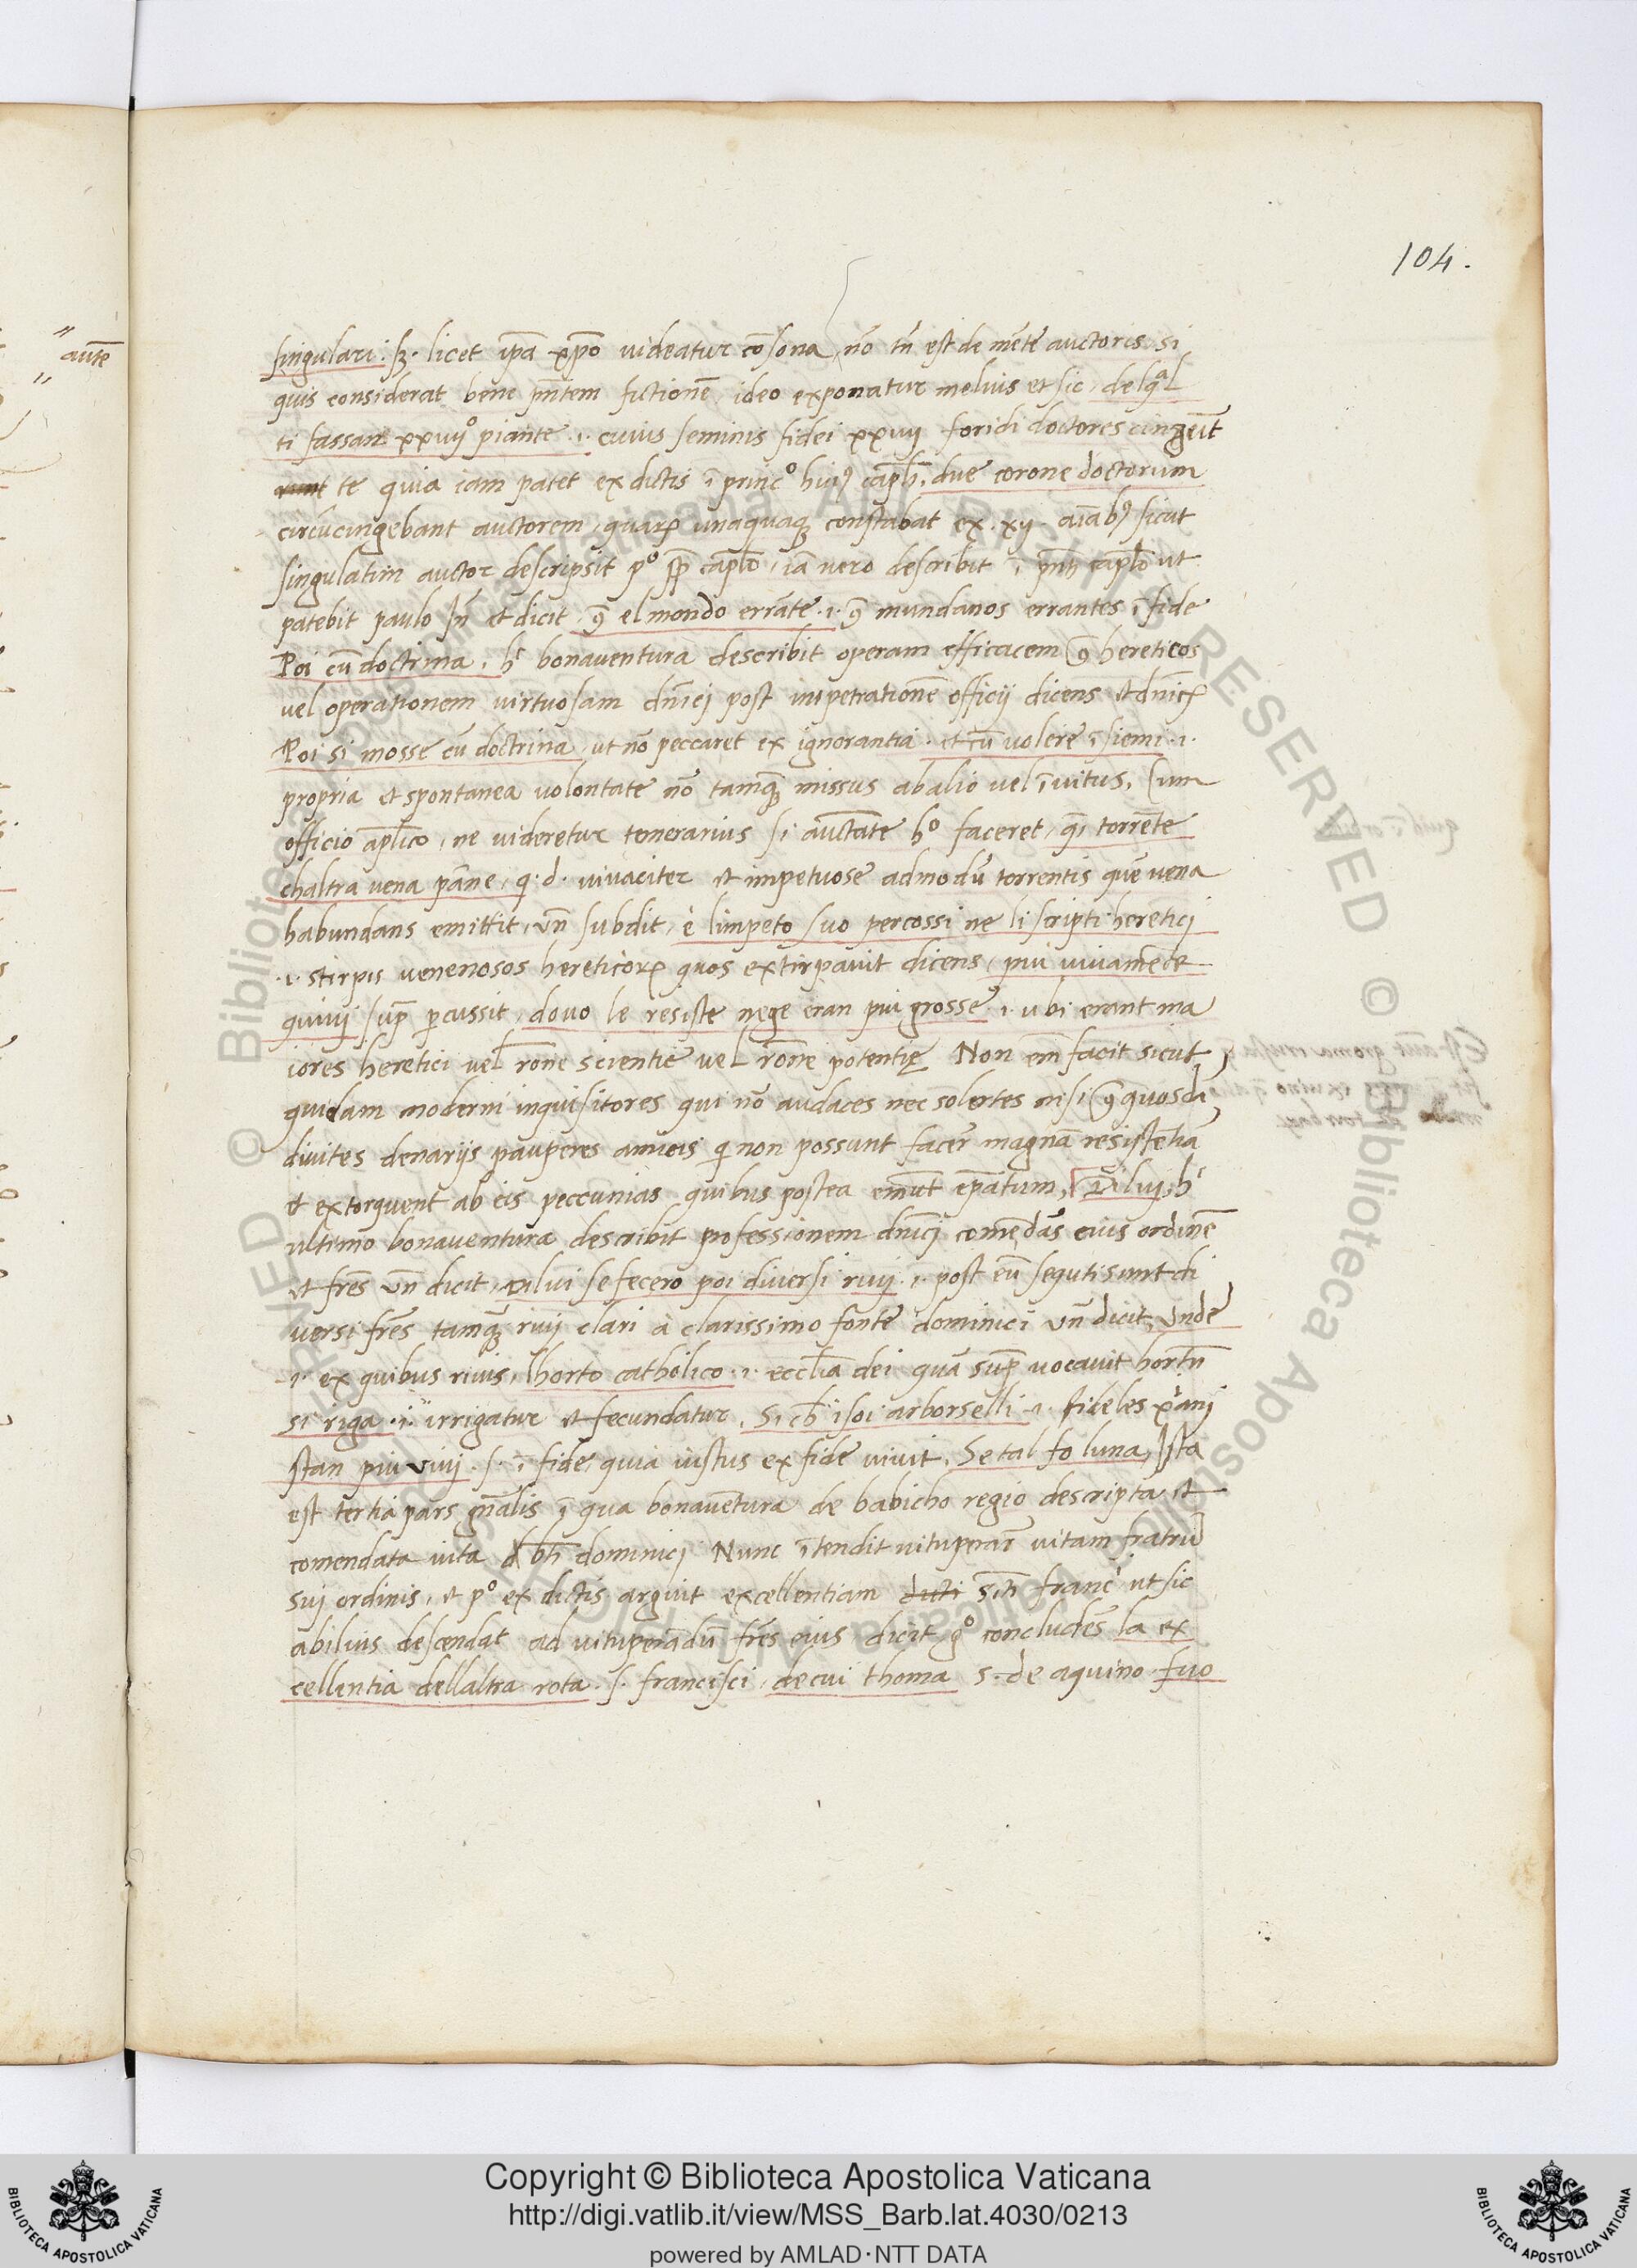 104.
auttẽ
singulari. sꝫ. licet ip̃a exp̃o videatur cõsona, nõ tñ est de mẽte auctoris si
quis considerat bene pñtem fictionẽ, ideo exponatur melius et sic, del qͣl
ti fassan xxiiijᵒ piante .i. cuius seminis fidei xxiiij foridi doctores cingẽt
runt te quia iam patet ex dictis ĩ princᵒ huiꝰ cap̃li, due corone doctorum
circũcingebant auctorem, quarꝝ unaquaqꝫ constabat ex .xij. aĩabꝰ sicut
singulatim auctor descripsit pᵒ sup̃ cap̃lo, iã vero describit ĩ pñti cap̃lo ut
patebit paulo Iñ et dicit, ꝯ el mondo errãte .i. ꝯ mundanos errantes ĩ fide
Poi cũ doctrina. hͥ bonaventura describit operam efficacem ꝯ hereticos
vel operationem virtuosam dñici post impetrationẽ officij dicens et dñicꝰ
Poi si mosse cũ doctrina, ut nõ peccaret ex ignorantia. et cũ volere ĩsiemi .i.
propria et spontanea volontate nõ tamqꝫ missus ab alio vel ĩvitus. Cum
officio ap̃lico, ne videretur temerarius si auctãte hᵒ faceret, q̃i torrẽte
chaltra vena p̃ime, q. d. vivaciter et impetuose admodũ torrentis quẽ vena
habundans emittit, uñ subdit, è limpeto suo percossi ne li scripti heretici
.i. stirpis venenosos hereticorꝝ quos extirpavit dicens, piu vivamẽte
quivi sup̃ ꝑcussit, dovo le resiste nçge eran piu grosse .i. ubi erant ma
iores heretici vel rõne scientie vel rõne potentię Non em̃ facit sicut
quidam moderni inquisitores qui nõ audaces nec solertes nisi ꝯ quosdã
divites denarijs pauperes amicis qi non possunt facer̃ magnã resistẽtiã
et extorquent ab eis peccunias quibus postea emũt ep̃atum, Di lui, hͥ
ultimo bonaventura describit professionem dñici comẽdãs eius ordinẽ
et fres̃ uñ dicit, Di lui se fecero poi diversi rivi .i. post eũ seguti sunt di
versi fres̃ tamqꝫ rivi clari à clarissimo fonte dominici uñ dicit, Unde
.i. ex quibus rivis, lhorto catholico .i. eccl̃ia dei quã sup̃ vocavit hortũ
si riga .i. irrigatur et fecundatur. Si ch̃ i soi arborselli .i. fideles xp̃ani
stan piu vivi .s. ĩ fide, quia iustus ex fide vivit, Se tal fo luna, Ista
est tertia pars gñalis ĩ qua bonavẽtura de babicho regio descripta et
comendata vita bt̃i dominici Nunc ĩtendit vituperar̃ vitam fratrũ
sui ordinis, et pᵒ ex dictis arguit excellentiam dicti sc̃ti francͥ ut sic
abilius descendat ad vituperãdũ fres̃ eius dicit, gᵒ concludẽs la ex
cellentia dellaltra rota .s. francisci, de cui thoma s. de aquino fuo
Copyright © Biblioteca Apostolica Vaticana
http://digi.vatlib.it/view/MSS_Barb.lat.4030/0213
powered by AMLAD·NTT DATA
BIBLIOTECA APOSTOLICA VATICANA
BIBLIOTECA APOSTOLICA VATICANA